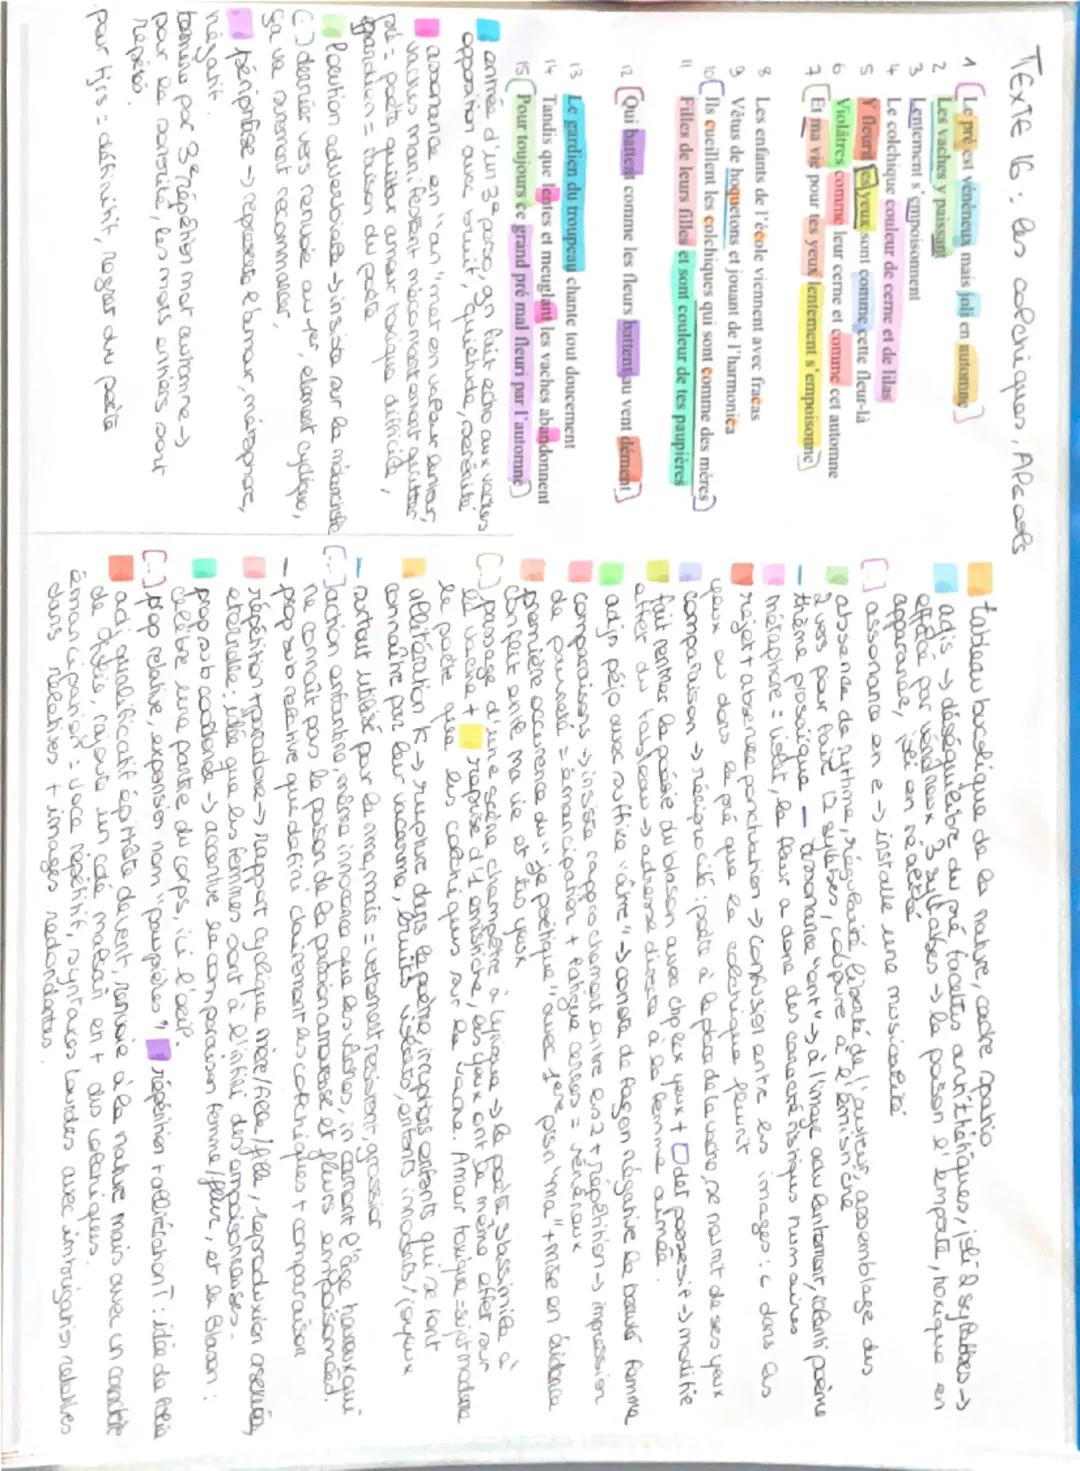 TEXTE 16 : les colchiques, Apcools
1 Le pré est vénéneux mais joli en automne
2 Les vaches y paissant
3 Lentement s'empoisonnent
4 Le colchique couleur de cerne et de lilas
5 Y fleurit tes yeux sont comme cette fleur-là
6 Violâtres comme leur cerne et comme cet automne
7 Et ma vie pour tes yeux lentement s'empoisonne
8 Les enfants de l'école viennent avec fracas
9 Vêtus de hoquetons et jouant de l'harmonica
10 Ils cueillent les colchiques qui sont comme des mères
11 Filles de leurs filles et sont couleur de tes paupières
12 Qui battent comme les fleurs battent au vent dément
13 Le gardien du troupeau chante tout doucement
14 Tandis que lentes et meuglant les vaches abandonnent
15 Pour toujours ce grand pré mal fleuri par l'automne
arrivée d'un 3e perso, qn fait echo aux vaches
opposition avec bruit, quiétude, sérénité
assonance en "an" met en valeur lenteur,
vaches manifestent mécontentement quitter
pré = poète quitter amour toxique difficile,
gardien = raison du poète
locution adverbiale → insiste sur la
(..) dernier vers renvoie au 1er, element cyclique,
ça va surement recommencer,
périphrase → représente l'amour, métaphore,
négatif.
termine par 3e répétition mot automne →
par la sonorité, les mots entiers sont
répétés.
pour tjrs = définitif, regret du poète
tableau bucolique de la nature, cadre spatio
adjs → déséquilibre du pré, facettes antithétiques, joli 2 syllabes →
effacé par vénéneux 3 syllabes → le poison l'emporte, toxique en
apparence, joli en réalité
(..) assonance en e → installe une musicalité
absence de rythme, régularité, liberté de l'auteur, assemblage des
2 vers pour faire 12 syllabes, coupure à l'hémistiche
thème prosaïque — assonance "ent" → à l'image du lentement, ralenti poème
métaphore = violet, la fleur a donc des caractéristiques humaines
rejet + absence ponctuation → confusion entre les images : c dans les
yeux ou dans le pré que le colchique fleurit
comparaison → réciprocité : poète à la place de la vache, se nourrit de ses yeux
fait rentrer la poésie du blason avec chp lex yeux + der possessif → modifie
effet du tableau → adresse directe à la femme aimée.
adjs péjo avec suffixe "âtre" → connote de façon négative la beauté femme
comparaisons → insiste rapprochement entre les 2 + répétition → impression
de pauvreté = émancipation + fatigue cernes = vénéneux
première occurence du "je poétique" avec 1ere psn "ma" + mise en évidence
conflit entre ma vie et tes yeux
(..) passage d'une scène champêtre à lyrique → le poète s'assimile à
la vache + reprise d'1 hémistiche, les yeux ont le même effet sur
le poète que les colchiques sur la vache. Amour toxique = sujet moderne
allitération k → rupture dans le poème, irruption enfants qui se font
connaître par leur vacarme, bruits violents, enfants innocents/joyeux
surtout utilisé pour la rime, mais = vetement résistant, grossier
(..) action enfantine, même innocence que les vaches, incarnent l'âge heureux qui
ne connaît pas le poison de la passion amoureuse et fleurs empoisonnées
prop sub relative qui définit clairement les colchiques + comparaison
répétition + paradoxe → rapport cyclique mère/fille/fille, reproduction asexuée,
éternelle : idée que les femmes sont à l'infini des empoisonneuses.
prop sub coordonnée → accentue la comparaison femme/fleur, et le Blason :
célèbre une partie du corps, ici l'oeil.
(..) prop relative, expansion nom "paupières", répétition + allitération T : idée de folie
adj qualificatif épithète dément, renvoie à la nature mais avec un caractère
de folie, rajoute un côté malsain en + des colchiques.
émancipation = voca répétitif, syntaxes lourdes avec imbrication relatives
dans relatives + images redondantes.